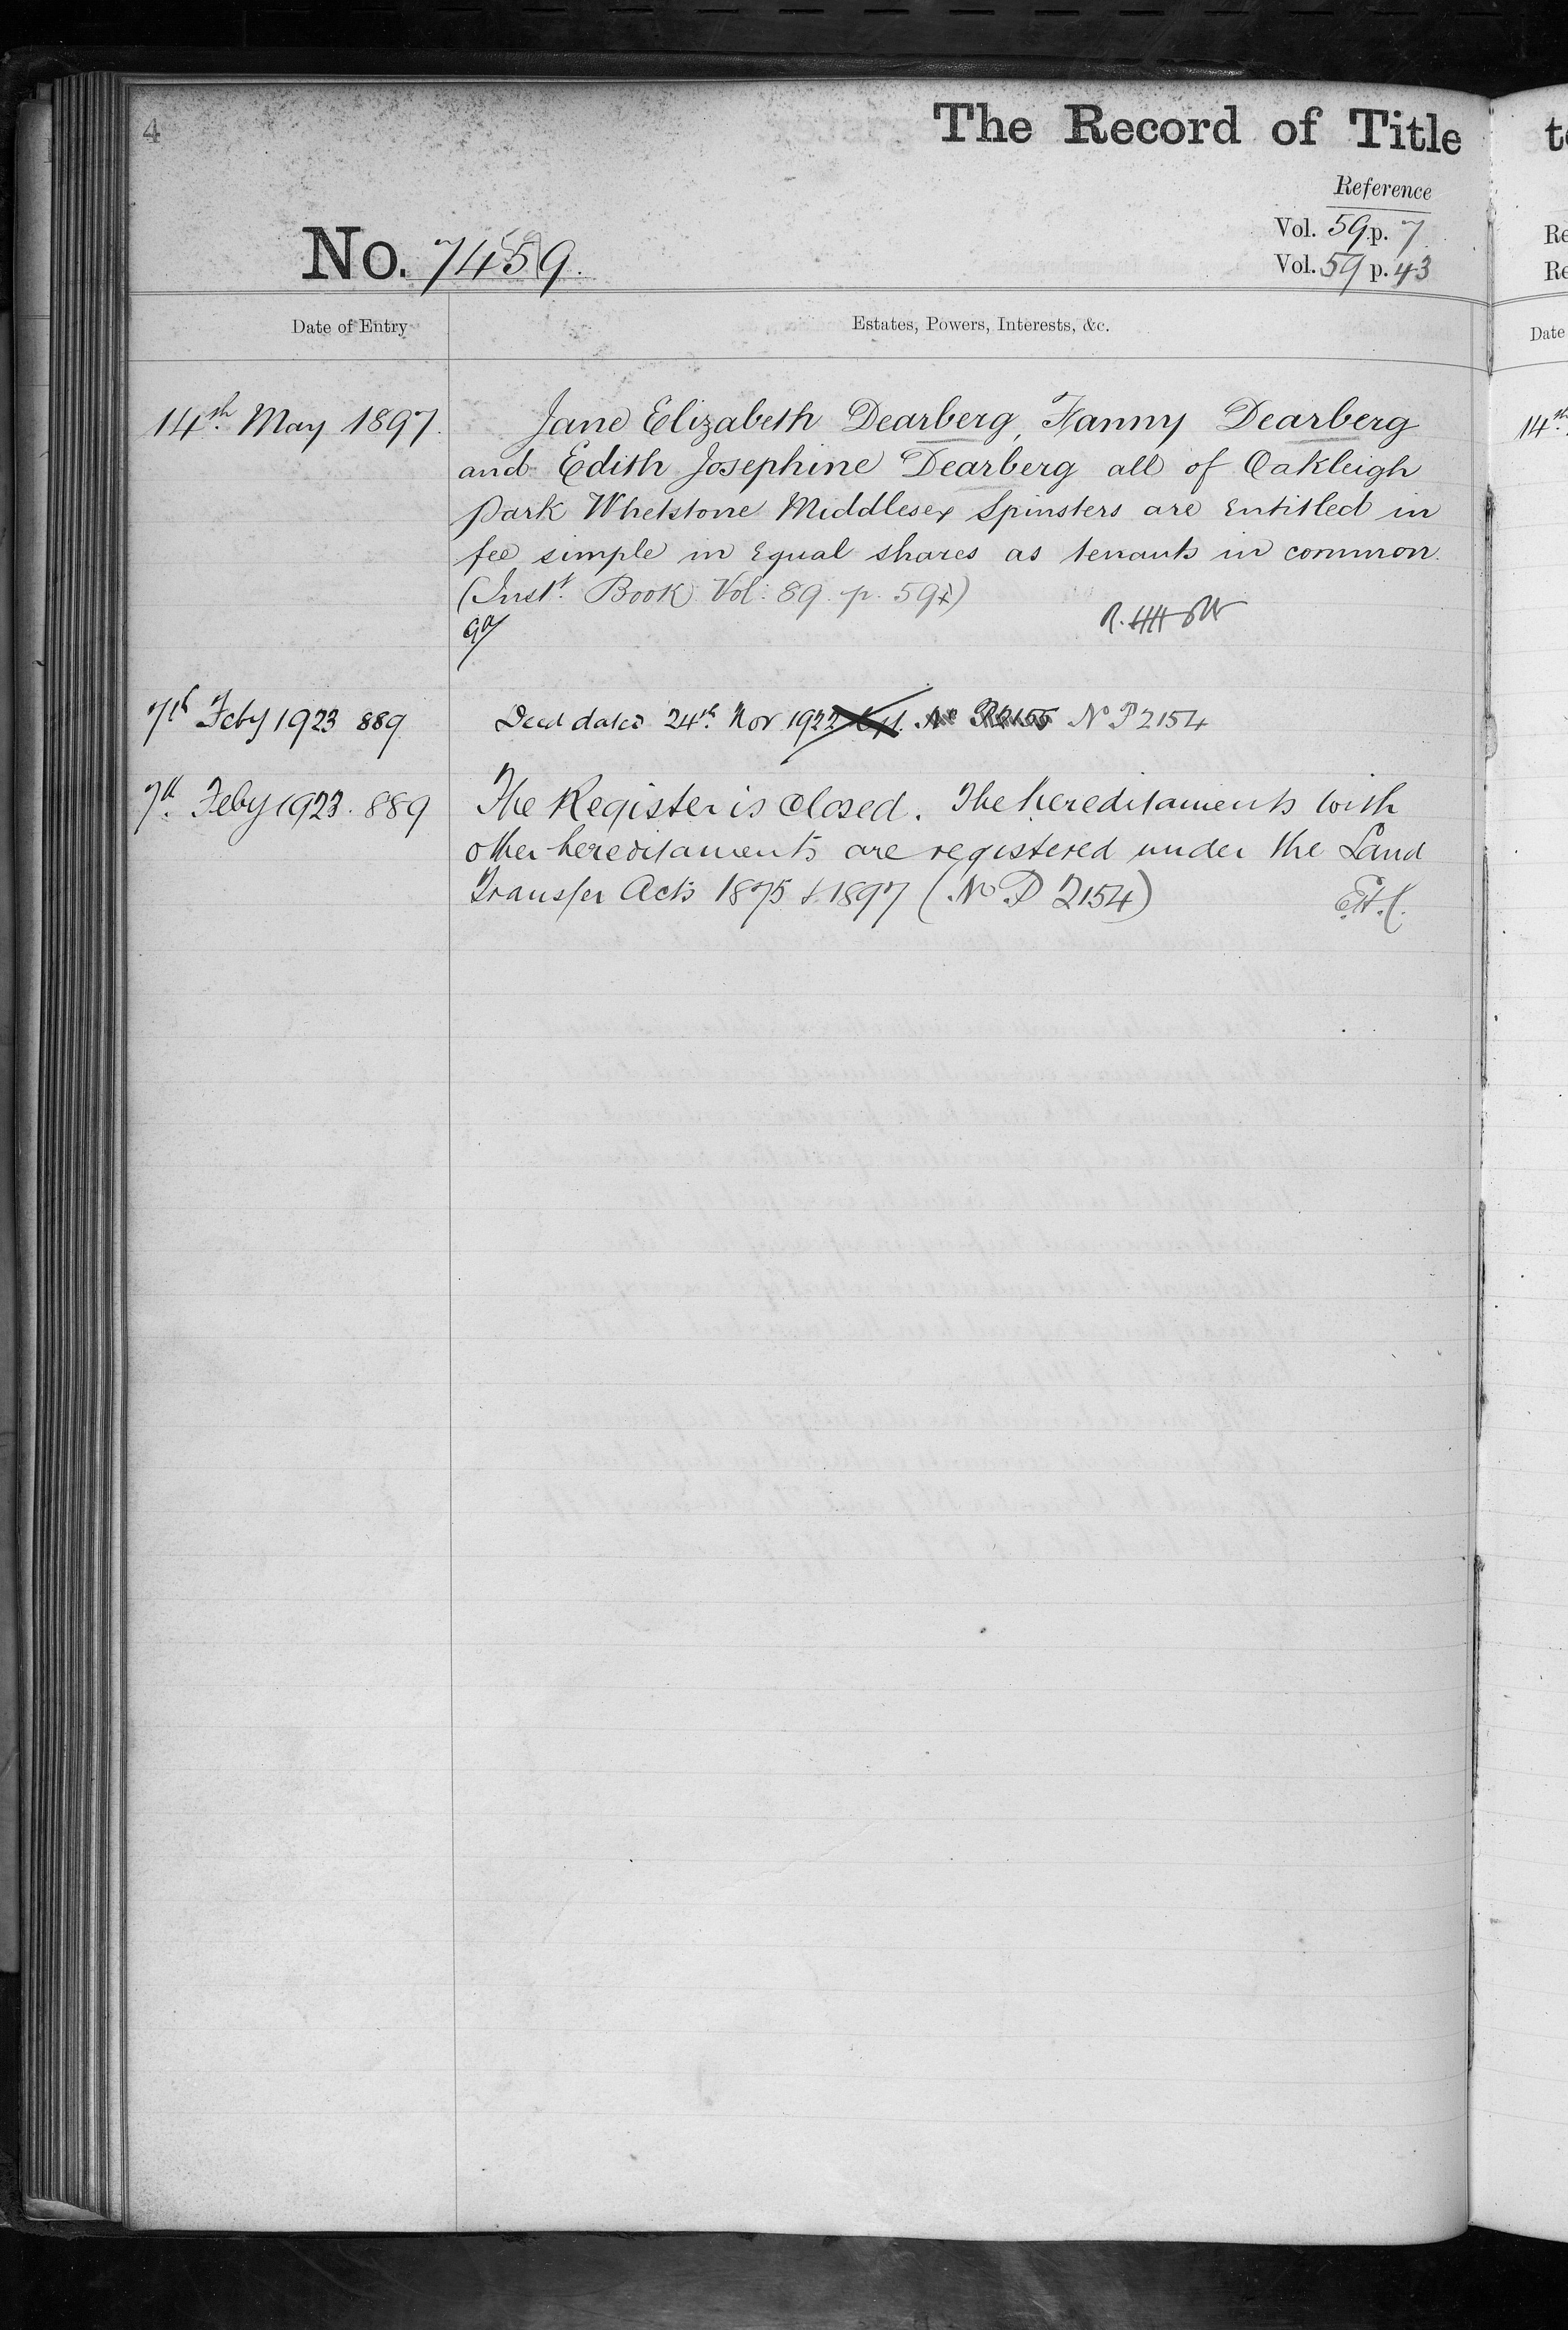 4
The Record of Title
Reference
Vol. 59 p. 7
Vol. 59 p. 43
No. 7459.
Date of Entry
Estates, Powers, Interests, &c.
14th May 1897.
Jane Elizabeth Dearberg, Fanny Dearberg
and Edith Josephine Dearberg all of Oakleigh
Park Whetstone Middlesex Spinsters are Entitled in
fee simple in Equal shares as tenants in common.
(Inst. Book Vol. 89. p. 59)
7th Feby 1923 889
Deed dated 24th Nov 1922 No P 2154
7th Feby 1923. 889
The Register is Closed. The hereditaments with
other hereditaments are registered under the Land
Transfer Acts 1875 & 1897 (No P 2154)
Re
Re
Date
14th